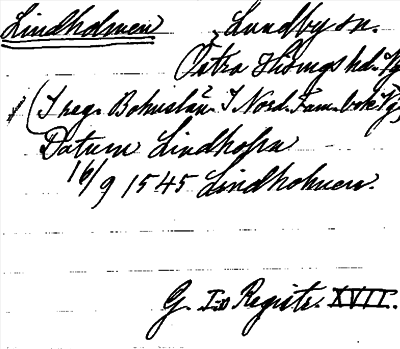 Lindholmen Lundby sn.
Östra Hisings hd. Vg
(I reg. Bohuslän. I Nord. Fam. bok Vg.
Datum Lindholm
16/9 1545 Lindholmen.
G. I:s Registr. XVII.